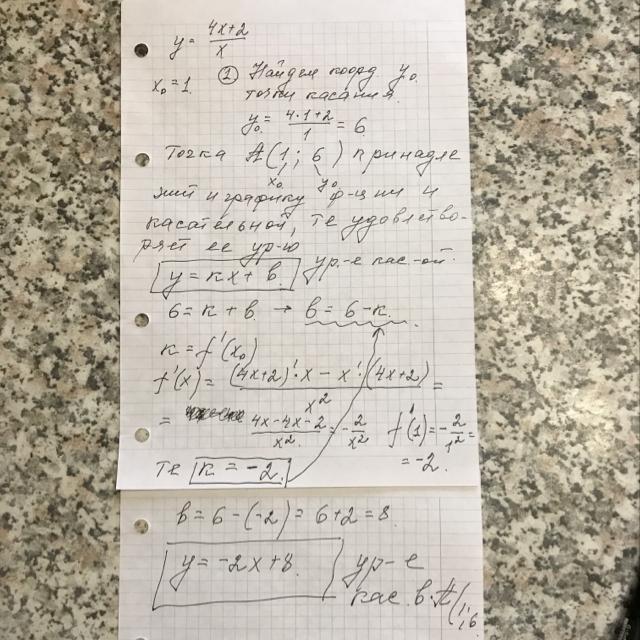 y = (4x+2)/x
x₀=1 ① Найдем коорд y₀
точки касания.
y₀ = (4·1+2)/1 = 6
Точка A(1; 6) принадле
x₀ y₀
жит и графику ф-ции и
касательной, те удовлетво-
ряет ее ур-ю
y = кx + в. ур-е кас-ой.
6 = к + в → в = 6-к.
к = f'(x₀)
f'(x) = ((4x+2)'·x – x'·(4x+2))/x² =
= (4x-4x-2)/x² = -2/x² f'(1) = -2/1² =
= -2.
те к = -2.
в = 6 - (-2) = 6+2 = 8.
y = -2x+8. ур-е
кас в A(1; 6